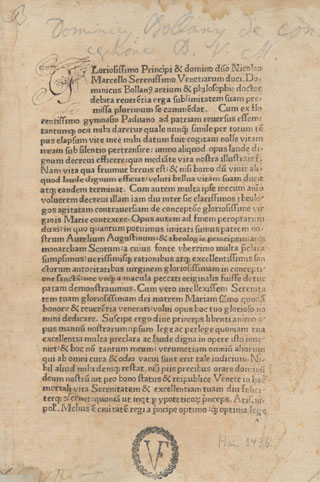 Dominicus Bollani de con
ceptione B. V. M.
Gloriosissimo Principi & domino dño Nicolao
Marcello Serenissimo Venetiarum duci. Do,
minicus Bollanus artium & philosophie doctor
debita reuerētia erga sublimitatem suam pre
missa plurimum se comēdat. Cum ex flo
rentissimo gymnasio Paduano ad patriam reuersus essem
tantumq; ocii mihi daretur quale nunq̃ simile per totum tē
pus elapsum vite mee mihi datum fuit cogitaui nolle vitam
meam sub silentio pertransire: immo aliquod opus laude di
gnum decreui efficere: quo mediāte vita nostra illustraret̃.
Nam vita qua fruimur breuis est: & nisi homo dū viuit ali
quod laude dignum efficiat: veluti bellua vitam suam ducit
atq; eandem terminat. Cum autem multa ipse mecum animo
voluerem decreui illam iam diu inter sacre clarissimos theolo
gos agitatam controuersiam de conceptōe gloriosissime vir
ginis Marie contexere. Opus autem ad finem peroptatum
duxi: in quo quantum potuimus imitati sumus patrem no
strum Aurelium Augustinum: & theologie principem: atq;
monarcham Scotum: a cuius fonte vberrimo multa preclara
sumpsimus: verissimisq; rationibus atq; excellentissimis san
ctorum autoritatibus virginem gloriosissimam in concepti
one sanctā: sine vnq̃ macula peccati originalis fuisse de tur
patam demonstrauimus. Cum vero intellexissem Serenita
tem tuam gloriosissimam dei matrem Mariam summo quodā
honore & reuerētia venerari: volui opus hoc tuo glorioso no
mini dedicare. Suscipe ergo dive princeps libenti animo o
pus manus nostrarum: ipsum lege ac perlege quoniam tua
excellentia multa preclara ac laude digna in opere isto inue
niet: & hoc nō tantum meum: verumetiam omniū aliorum
qui ab omni cura & odio vacui sunt erit tale iudicium. Ni
hil aliud mihi deniq; restat. nisi pius precibus orare domi
deum nostrū ut pro bono status & reipublice Venete in hac
mortali vita Serenitatem & excellentiam tuam diu felici
terq; conseruet
pol. Melius ē ciuitatē regi a pncipe optimo q̃ optima lege
Hain 3436.
VF